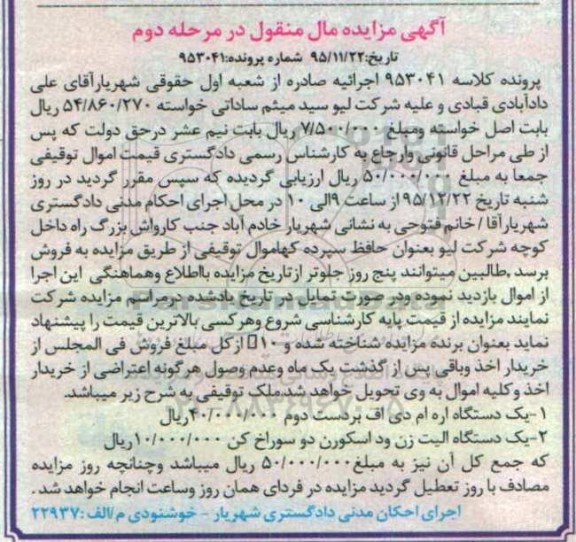 آگهی مزایده مال منقول در مرحله دوم
تاریخ:۹۵/۱۱/۲۲ شماره پرونده:۹۵۳۰۴۱
پرونده کلاسه ۹۵۳۰۴۱ اجرائیه صادره از شعبه اول حقوقی شهریارآقای علی
دادآبادی قبادی و علیه شرکت لیو سید میثم ساداتی خواسته ۵۴/۸۶۰/۲۷۰ ریال
بابت اصل خواسته ومبلغ ۷/۵۰۰/۰۰۰ ریال بابت نیم عشر درحق دولت که پس
از طی مراحل قانونی وارجاع به کارشناس رسمی دادگستری قیمت اموال توقیفی
جمعا به مبلغ ۵۰/۰۰۰/۰۰۰ ریال ارزیابی گردیده که سپس مقرر گردید در روز
شنبه تاریخ ۹۵/۱۲/۲۲ از ساعت ۹الی ۱۰ در محل اجرای احکام مدنی دادگستری
شهریار آقا / خانم فتوحی به نشانی شهریار خادم آباد جنب کارواش بزرگ راه داخل
کوچه شرکت لیو بعنوان حافظ سپرده کهاموال توقیفی از طریق مزایده به فروش
برسد ,طالبین میتوانند پنج روز جلوتر ازتاریخ مزایده بااطلاع وهماهنگی این اجرا
از اموال بازدید نموده ودر صورت تمایل در تاریخ یادشده درمراسم مزایده شرکت
نمایند مزایده از قیمت پایه کارشناسی شروع وهرکسی بالاترین قیمت را پیشنهاد
نماید بعنوان برنده مزایده شناخته شده و ۱۰ ازکل مبلغ فروش فی المجلس از
خریدار اخذ وباقی پس از گذشت یک ماه وعدم وصول هرگونه اعتراضی از خریدار
اخذ وکلیه اموال به وی تحویل خواهد شد.ملک توقیفی به شرح زیر میباشد.
۱-یک دستگاه اره ام دی اف بردست دوم ۴۰/۰۰۰/۰۰۰ریال
۲-یک دستگاه الیت زن ود اسکورن دو سوراخ کن ۱۰/۰۰۰/۰۰۰ریال
که جمع کل آن نیز به مبلغ۵۰/۰۰۰/۰۰۰ ریال میباشد وچنانچه روز مزایده
مصادف با روز تعطیل گردید مزایده در فردای همان روز وساعت انجام خواهد شد.
اجرای احکان مدنی دادگستری شهریار - خوشنودی م/الف:۲۲۹۳۷